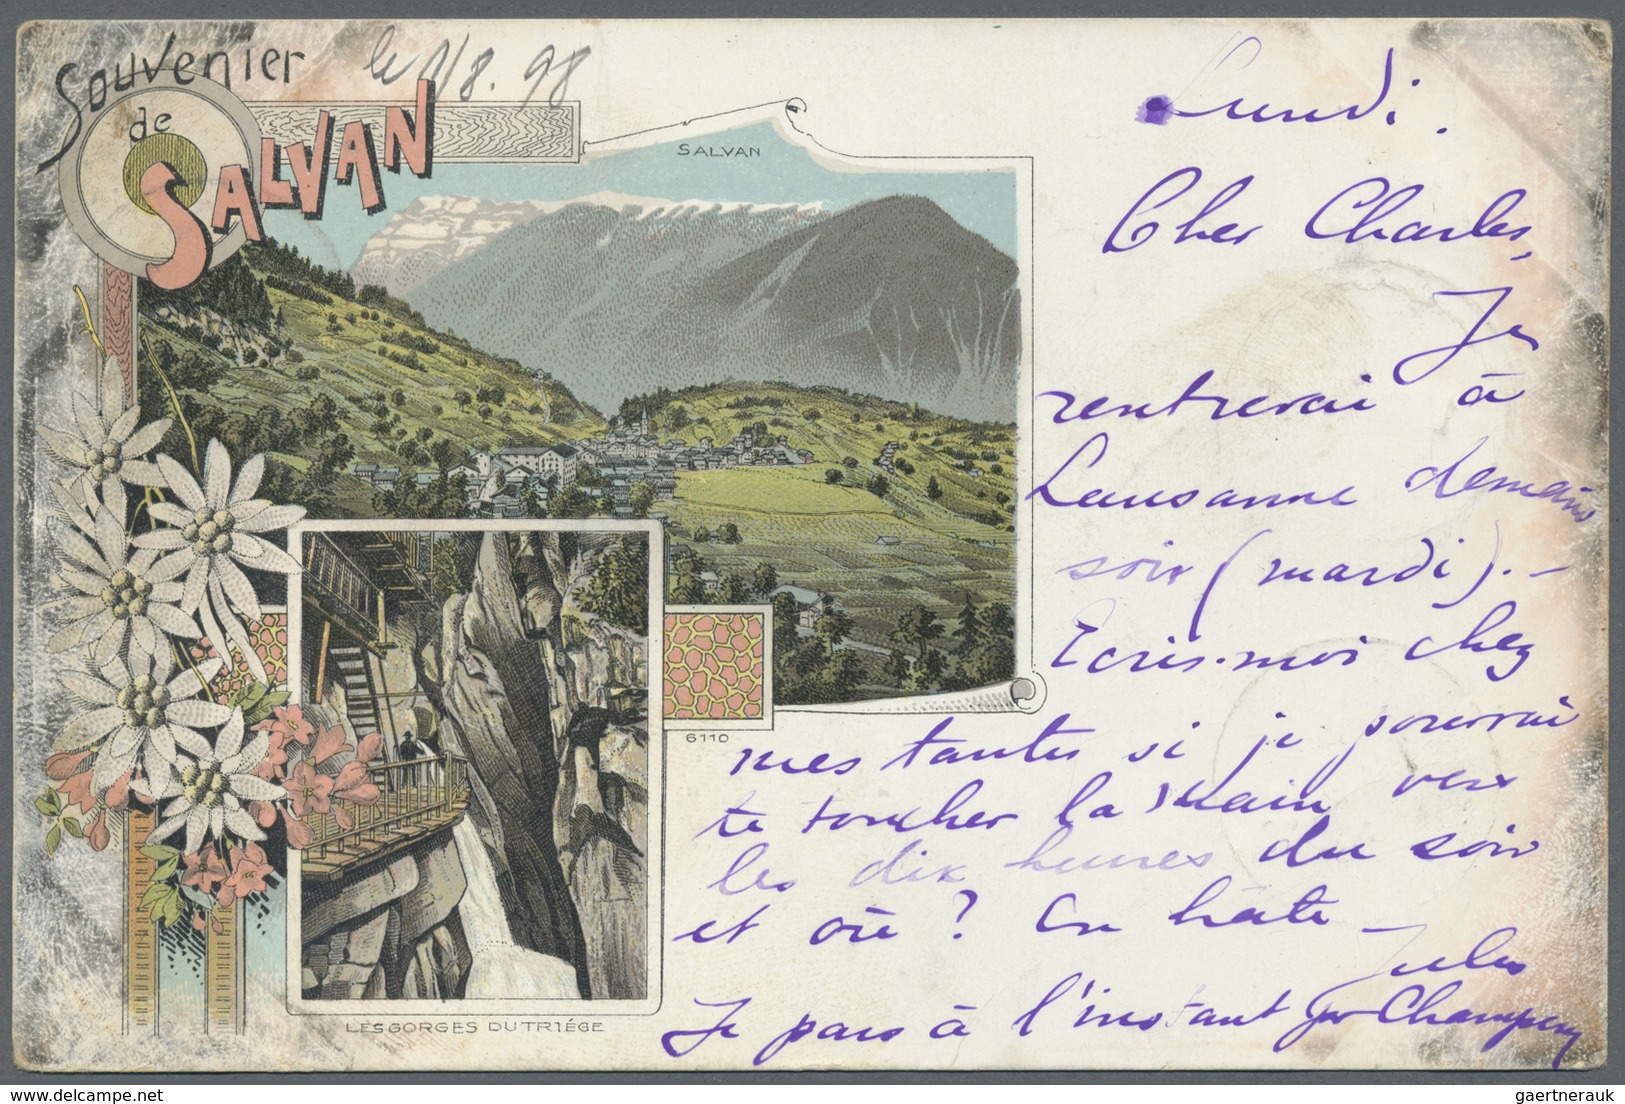 Souvenier
de
SALVAN
le 1/8. 98
SALVAN
Lundi.
Cher Charles,
Je
rentrerai à
Lausanne demain
soir (mardi). –
Ecris-moi chez
mes tantes si je pourrai
te toucher la main vers
les dix heures du soir
et où? En hâte
Jules
Je pars à l'instant pr Champery
6110
LES GORGES DU TRIÉGE
gaertnerauk